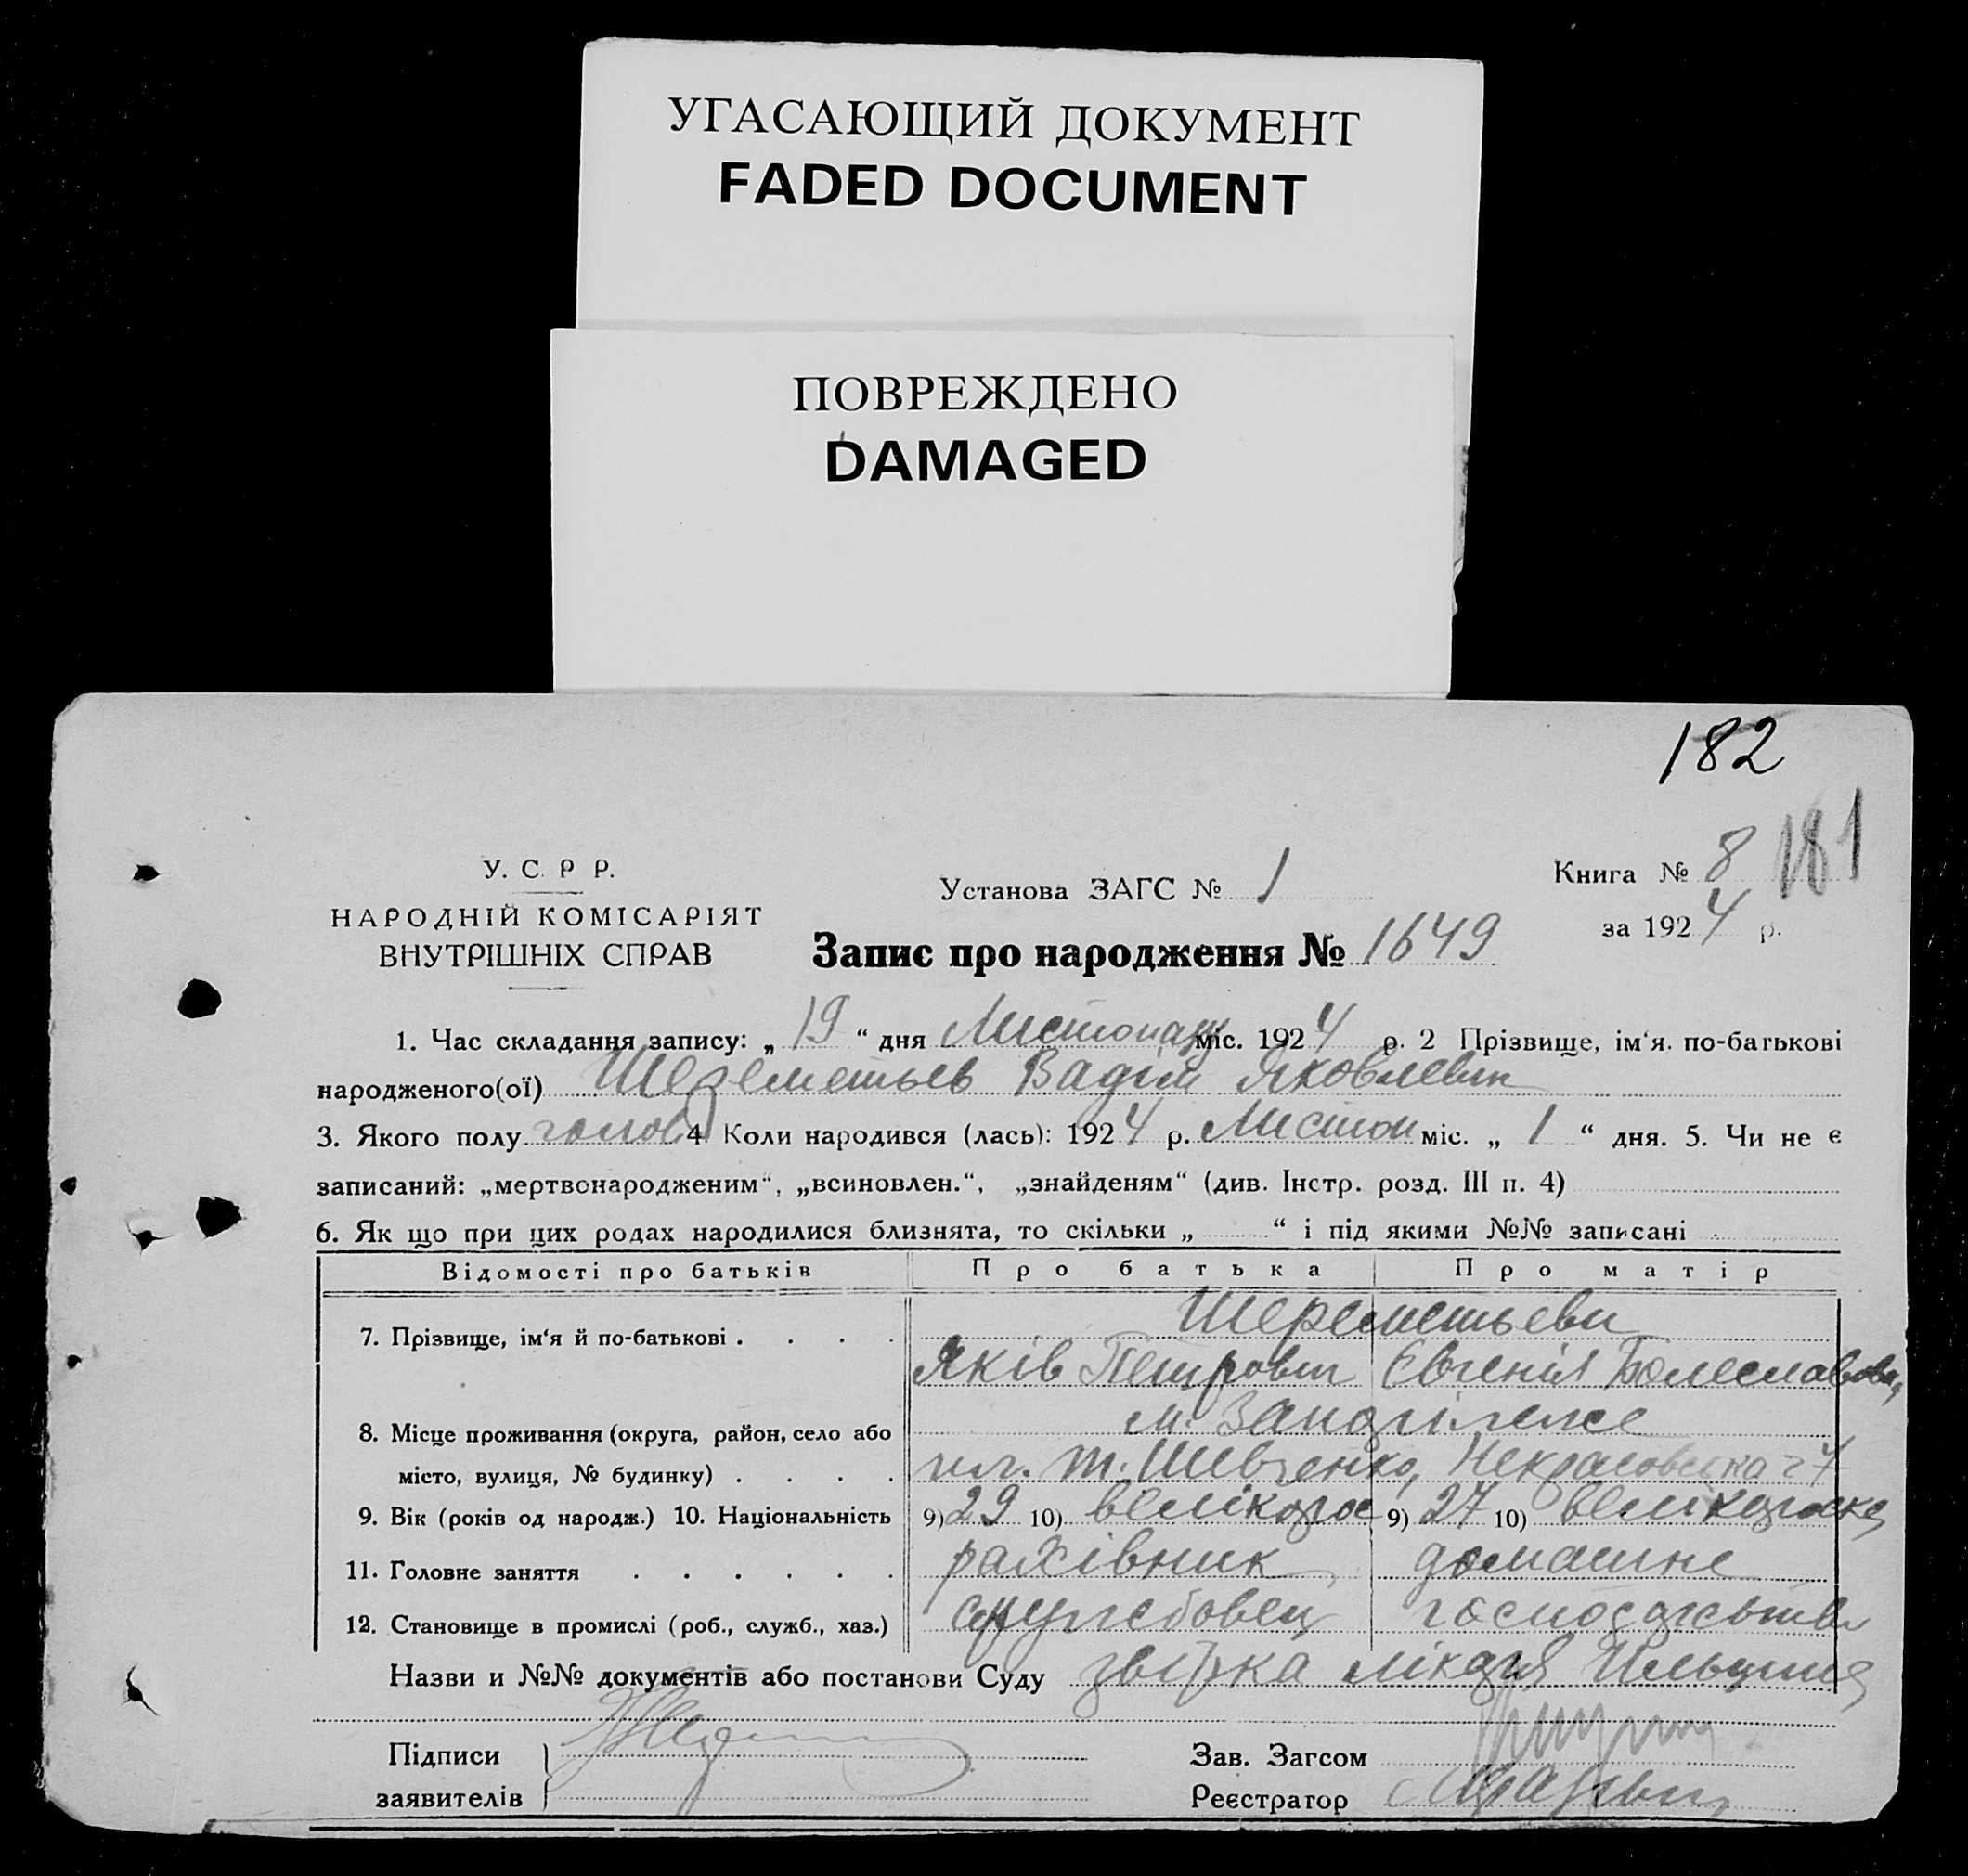 УГАСАЮЩИЙ ДОКУМЕНТ
FADED DOCUMENT
ПОВРЕЖДЕНО
DAMAGED
182
181
У. С. Р Р.
НАРОДНІЙ КОМІСАРІЯТ
ВНУТРІШНІХ СПРАВ
Установа ЗАГС № 1
Книга № 8
за 1924 р.
Запис про народження № 1649
1. Час складання запису: „ 19 “ дня Листопад міс. 1924 р. 2 Прізвище, ім‘я. по-батькові
народженого(ої) Шереметьев Вадім Яковлевич
3. Якого полу 4 Коли народився (лась): 1924 р. Листоп міс. „ 1 “ дня. 5. Чи не є
записаний: „мертвонародженим“, „всиновлен.“, „знайденям“ (див. Інстр. розд. III п. 4)
6. Як що при цих родах народилися близнята, то скільки „ “ і під якими №№ записані
Відомості про батьків Про батька Про матір
Шереметьеви
7. Прізвище, ім‘я й по-батькові . . . . Яків Петрович Євгенія Болеславовна
м.
8. Місце проживання (округа, район, село або
місто, вулиця, № будинку) . . . . Т. Шевченко, Некрасовська
9. Вік (років од народж.) 10. Національність 9) 29 10) великорос 9) 27 10) великороска
11. Головне заняття . . . . . . рахівник домашне
12. Становище в промислі (роб., служб., хаз.) службовец господарьство
Назви и №№ документів або постанови Суду лікаря
Підписи
заявителів
Зав. Загсом
Реєстратор